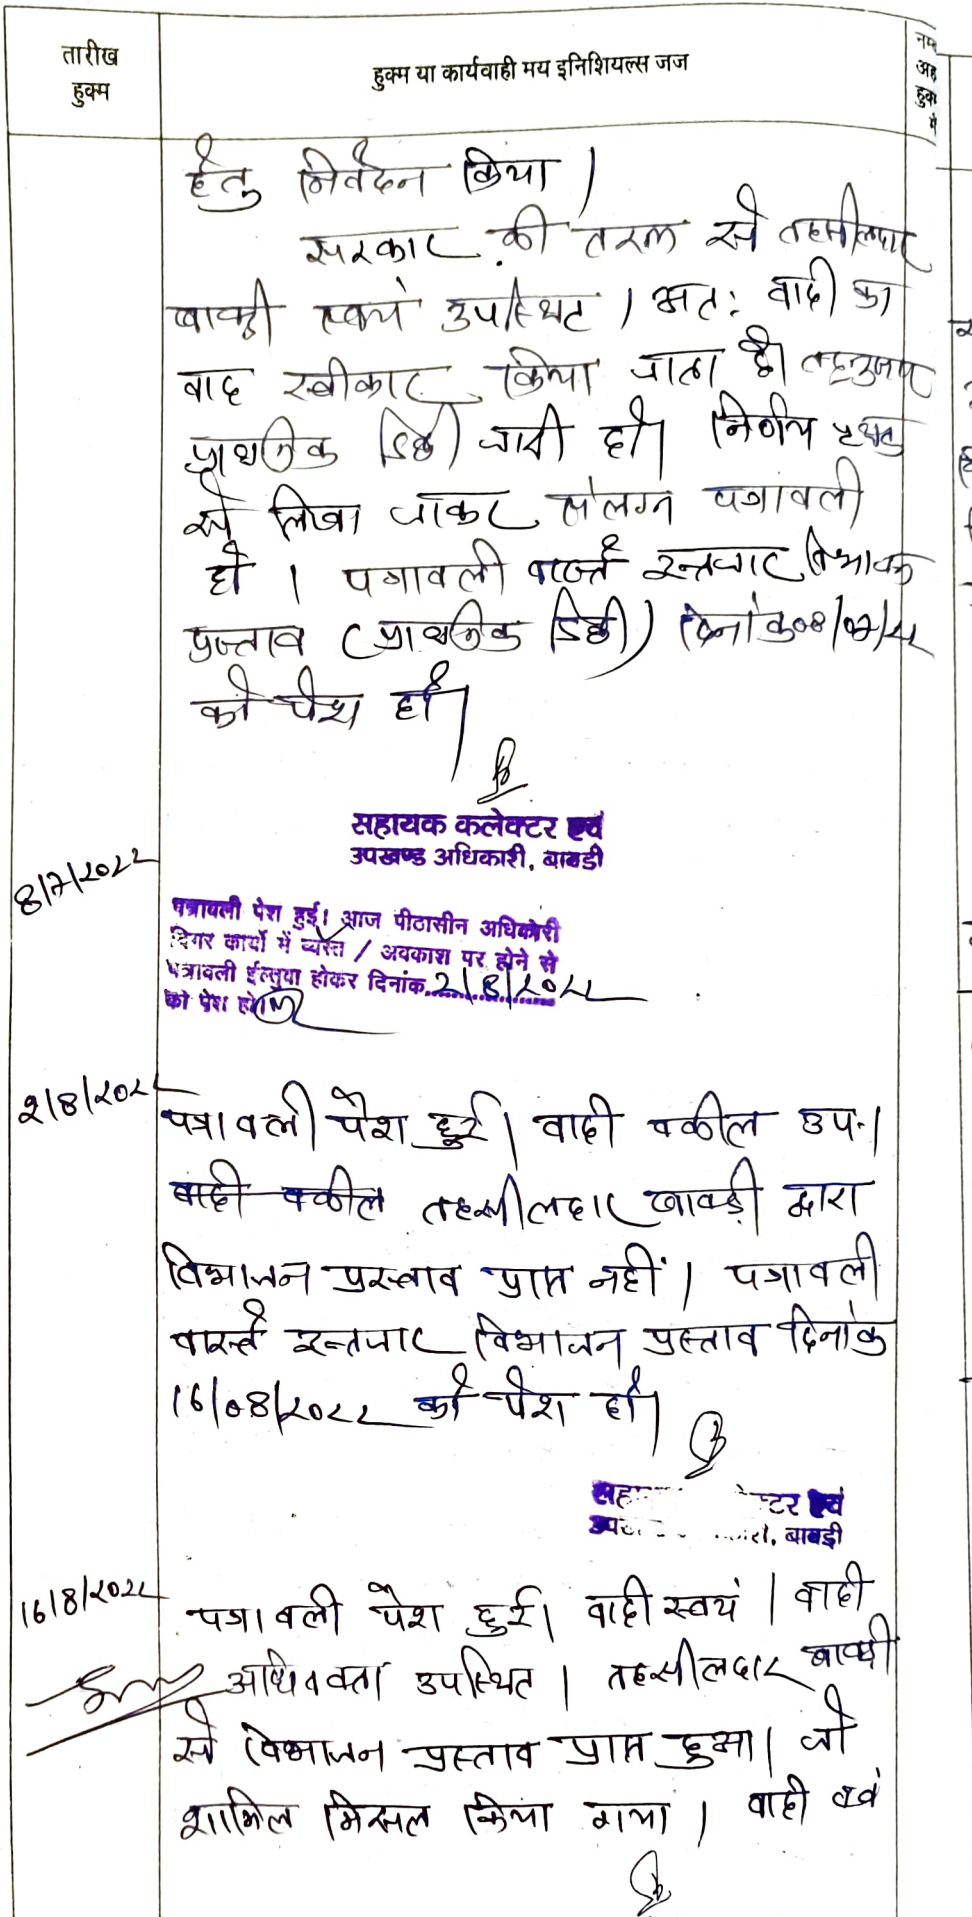 तारीख
हुक्म
हुक्म या कार्यवाही मय इनिशियल्स जज
नम
अह
हुक्म
में
हेतु निवेदन किया ।
सरकार की तरफ से तहसीलदार
बावड़ी स्वयं उपस्थित । अतः वादी का
वाद स्वीकार किया जाता है। तद्नुसार
प्राथमिक डिक्री जारी हो। निर्णय पृथक
से लिखा जाकर संलग्न पत्रावली
हो । पत्रावली वास्ते इन्तजार विभाजन
प्रस्ताव (प्राथमिक डिक्री) दिनांक 08/07/22
को पेश हो।
सहायक कलेक्टर एवं
उपखण्ड अधिकारी, बावडी
8/7/2022
पत्रावली पेश हुई। आज पीठासीन अधिकारी
दिगर कार्यो में व्यस्त / अवकाश पर होने से
पत्रावली ईल्तुवा होकर दिनांक 2/8/2022
को पेश हो
2/8/202
पत्रावली पेश हुई। वादी वकील उप.।
वादी वकील तहसीलदार बावड़ी द्वारा
विभाजन प्रस्ताव प्राप्त नहीं । पत्रावली
वास्ते इन्तजार विभाजन प्रस्ताव दिनांक
16/08/2022 को पेश हो।
सहा टर एवं
उपख री, बावडी
16/8/2022
पत्रावली पेश हुई। वादी स्वयं । वादी
अधिवक्ता उपस्थित । तहसीलदार बावड़ी
से विभाजन प्रस्ताव प्राप्त हुआ। जो
शामिल मिसल किया गया । वादी एवं